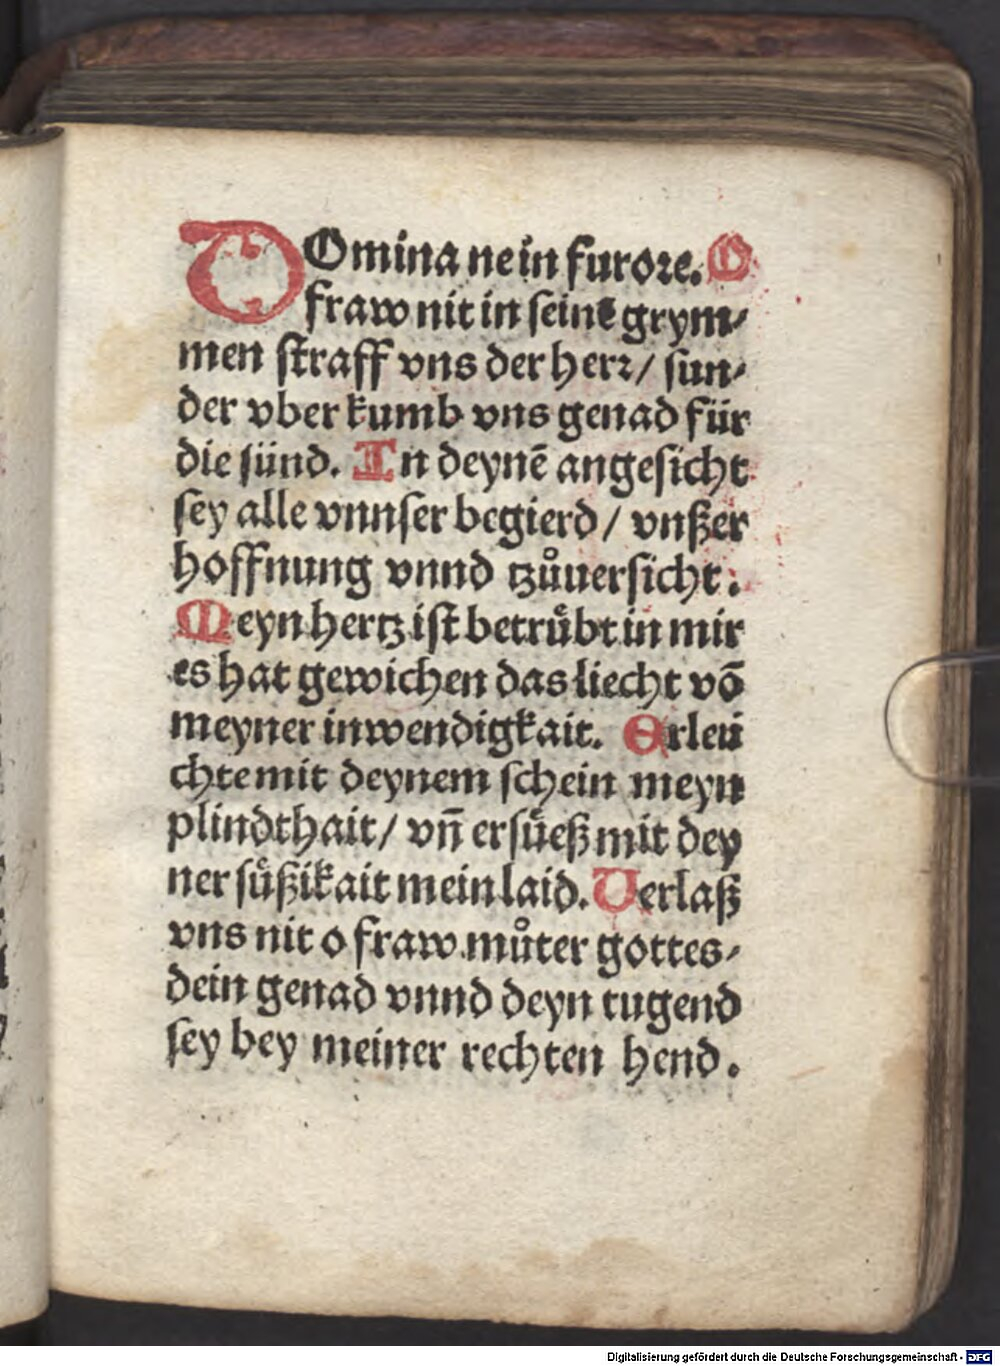 DOmina ne in furore. O
fraw nit in seinē grym⸗
men straff vns der herr / sun⸗
der vber kumb vns genad für
die sünd. In deynē angesicht
sey alle vnnser begierd / vnßer
hoffnung vnnd tzůuersicht.
Meyn hertz ist betrůbt in mir
es hat gewichen das liecht vō
meyner inwendigkait. Erleu
chte mit deynem schein meyn
plindthait / vn̄ ersüeß mit dey
ner sůßikait mein laid. Verlaß
vns nit o fraw můter gottes⸗
dein genad vnnd deyn tugend
sey bey meiner rechten hend.
Digitalisierung gefördert durch die Deutsche Forschungsgemeinschaft - DFG